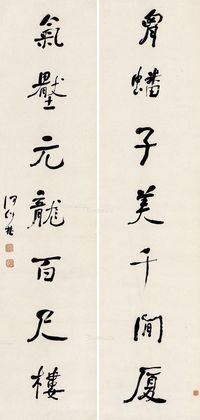 胷蟠子美千間厦
氣壓元龍百尺樓
何紹基